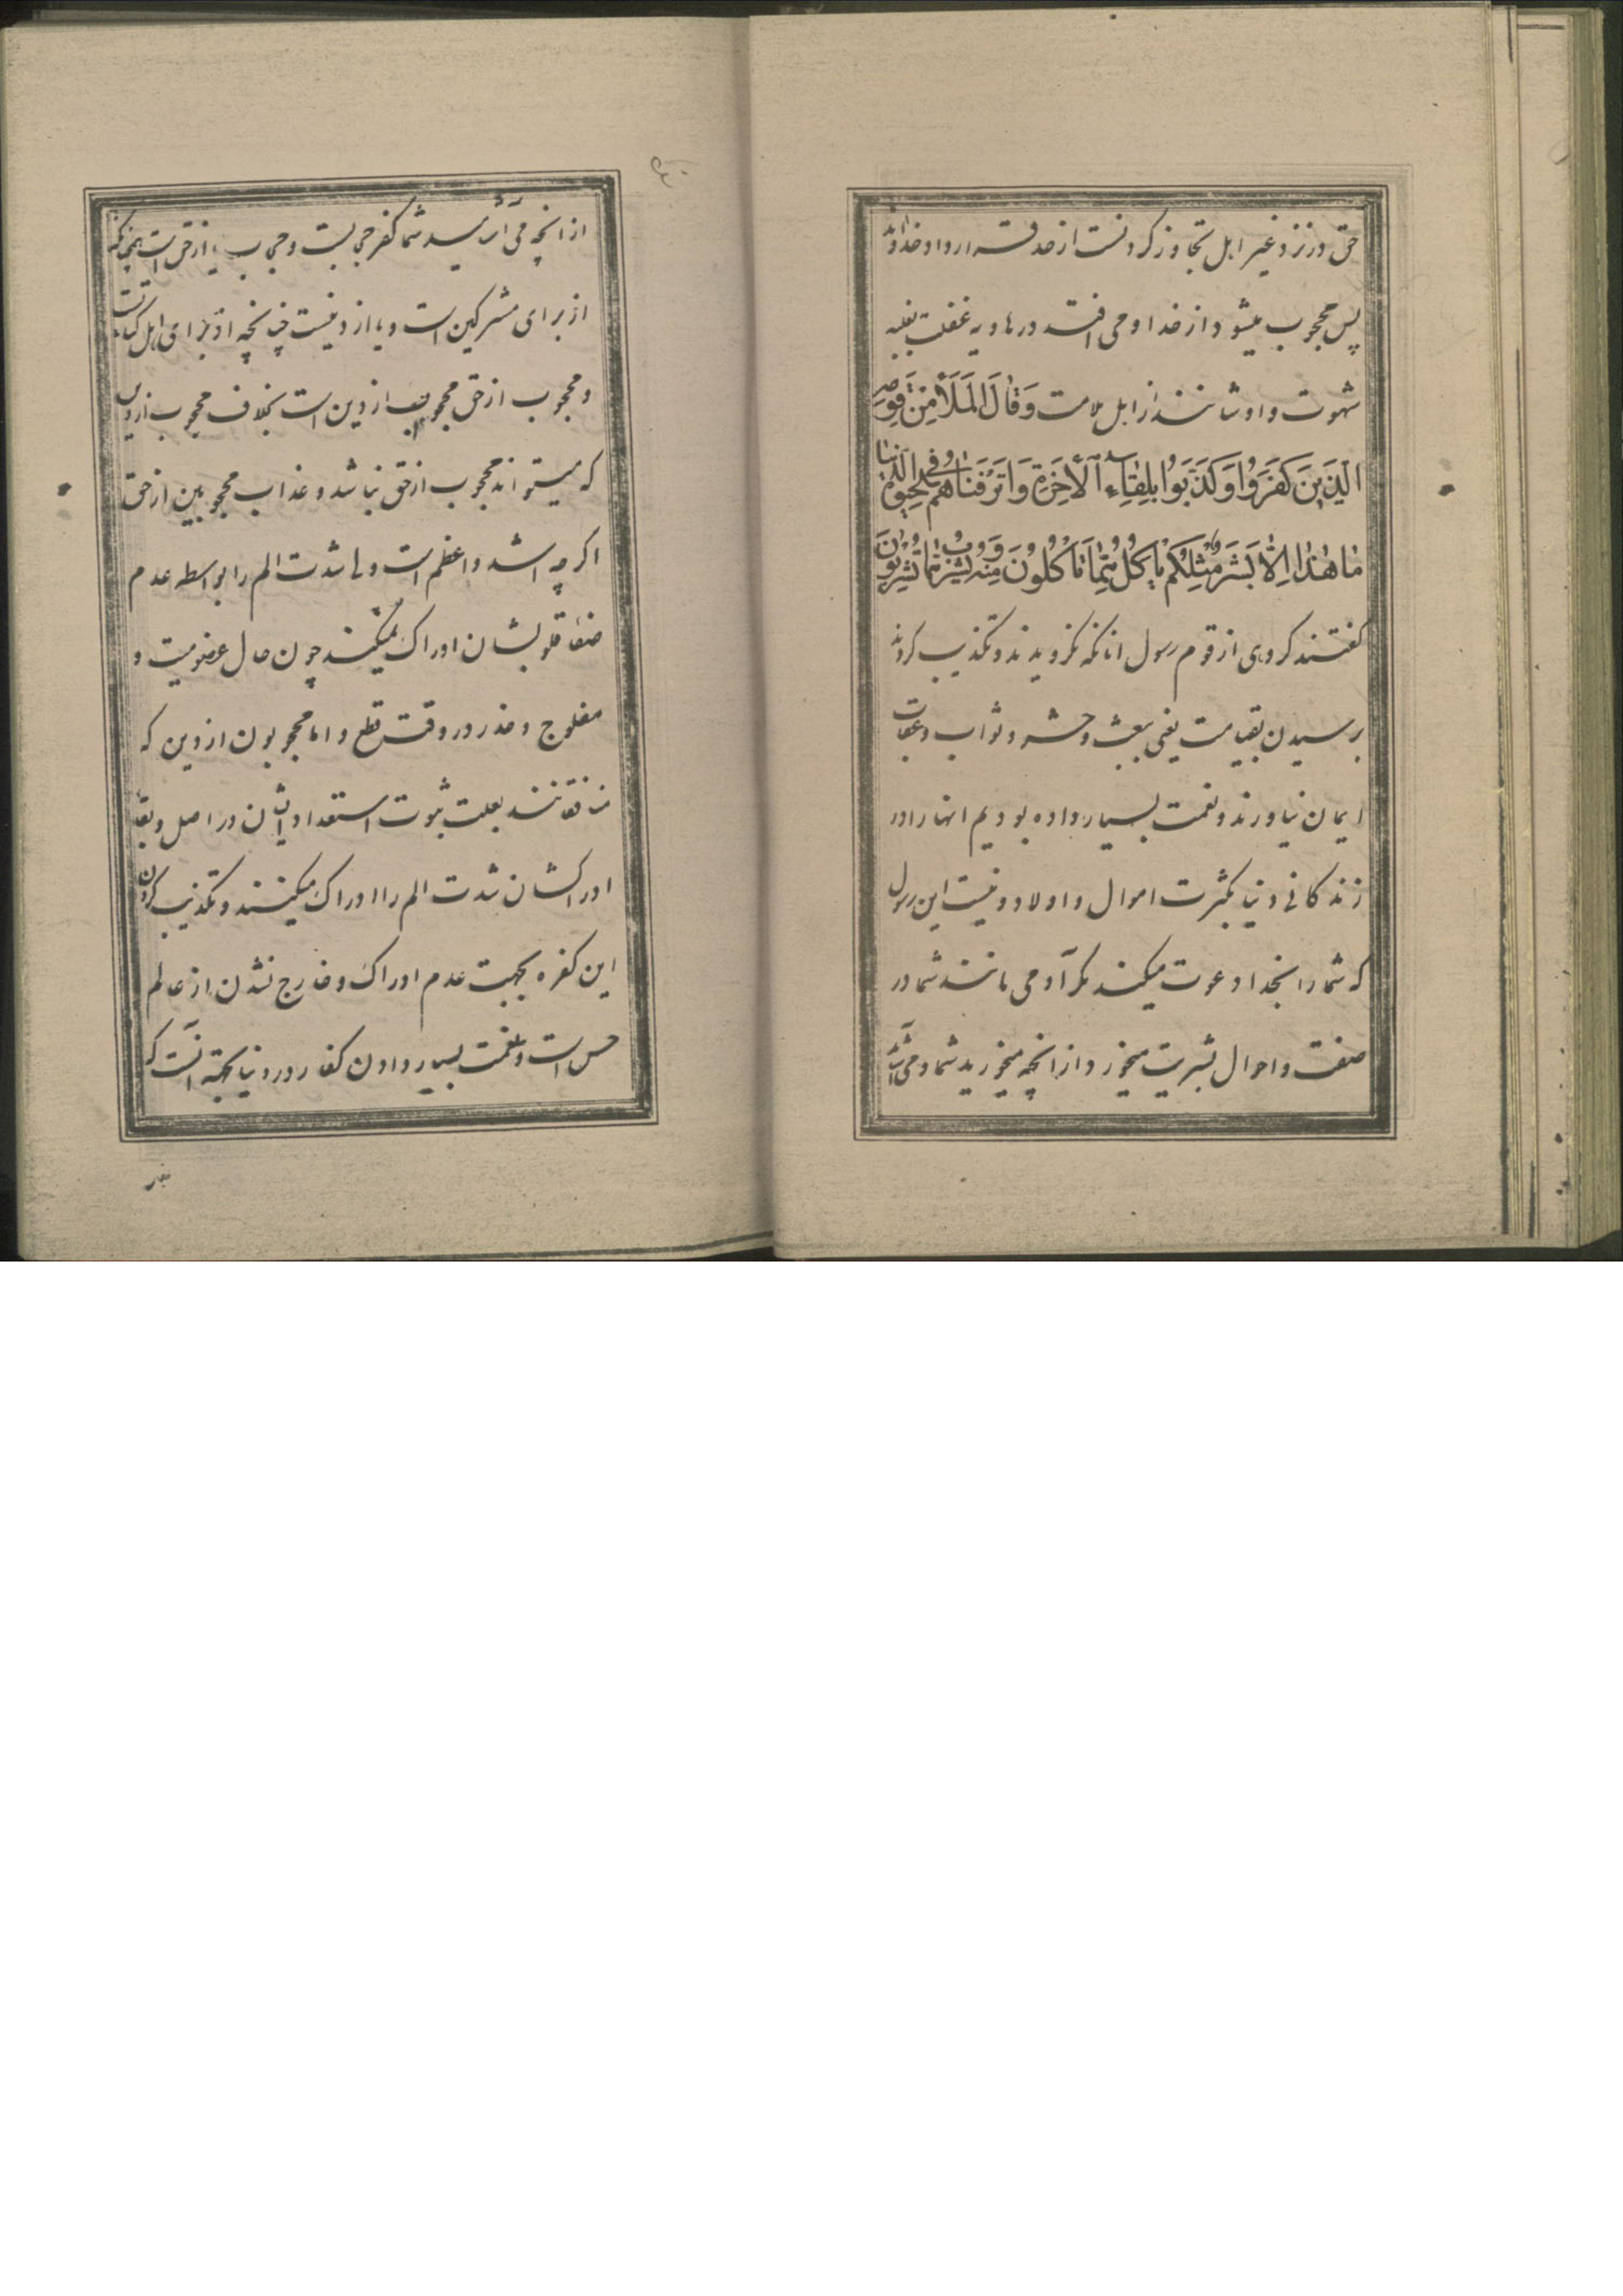 حق در نزد غیر اهل تجاوز کردنست از حد قسه ار و اوخذاوند
پس محجوب میشود از خدا و می افتد در هاویه غفلت بغلبه
شهوت و اوشانند از اهل ملامت وَقالَ المَلَأُ مِنْ قَومِهِ
الَّذینَ کَفَرُوا وَکَذَّبَوُا بِلِقاءِ الْأخِرَةِ وَاَتْرَفْناهُمْ فِی الْحَیوةِ الدُّنیا
ما هذا اِلّا بَشَرٌ مِثْلُکُمْ یَاْکُلُ مِمّا تَاْکُلُونَ مِنْهُ وَیَشْرَبُ مِمّا تَشْرَبُونَ
گفتند کروهی از قوم رسول انانکه نکرویدند و تکذیب کردند
برسیدن بقیامت یعنی ببعث و حشر و ثواب و عقاب
ایمان نیاوردند و نعمت بسیار داده بودیم انها را در
زندکانی دنیا بکثرت اموال و اولاد و نیست این رسول
که شما را بخدا دعوت میکند مکر آدمی مانند شما در
صفت و احوال بشریت میخورد از انچه میخورید شما و می آشامد
از انچه می آشامید شما کفر حجابست و حجاب یا از حق است چنانکه
از برای مشرکین است و یا از دینست چنانچه از برای اهل کتابست
و محجوب از حق محجوب از دین است بخلاف محجوب از دین
که میتواند محجوب از حق نباشد و عذاب محجوبین از حق
اکرچه اشد و اعظم است ولی شدت الم را بواسطه عدم
صفاء قلوبشان ادراک نمیکنند چون حال عضو میت و
مفلوج و خدر در وقت قطع و اما محجوبون از دین که
منافقانند بعلت ثبوت استعداد ایشان در اصل و بقاء
ادراکشان شدت الم را ادراک میکنند و تکذیب کردن
این کفره بجهت عدم ادراک و خارج نشدن از عالم
حس است و نعمت بسیار دادن کفار در دنیا بجهة آنست که